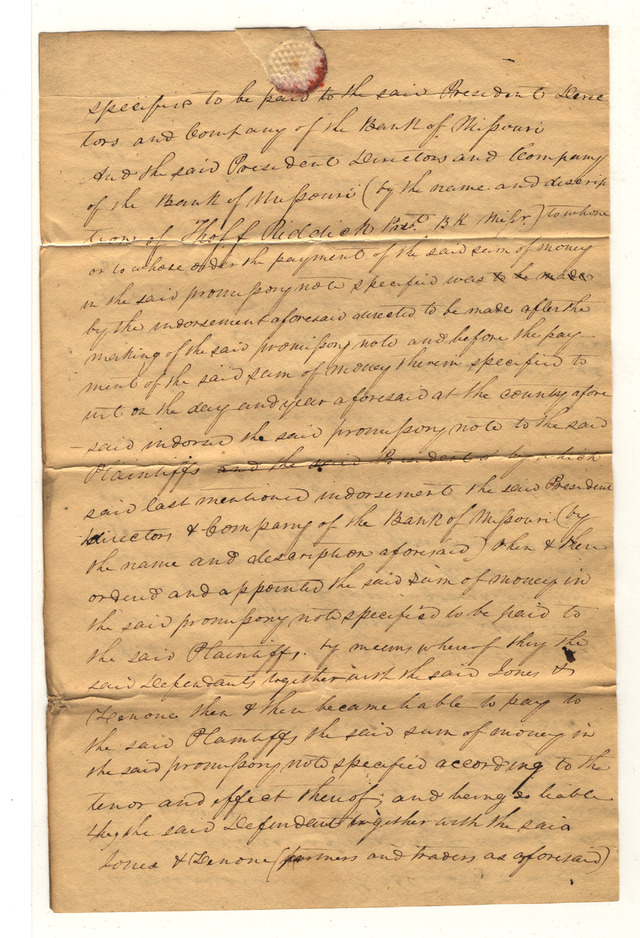 specified to be paid to the said President Direc
tors and Company of the Bank of Missouri
And the said President Directors and Company
of the Bank of Missouri (by the name and descrip
tion of Thos F Riddick Prest. B K Missr.) to whom
or to whose order the payment of the said sum of money
in the said promissory note specified was to be made
by the indorsement aforesaid directed to be made after the
making of the said promissory note and before the pay
ment of the said sum of money therein specified to
wit on the day and year aforesaid at the county afore
said indorse the said promissory note to the said
Plaintiffs and the said President by which
said last mentioned indorsement the said President
directors & Company of the Bank of Missouri (by
the name and description aforesaid) then & there
ordered and appointed the said sum of money in
the said promissory note specified to be paid to
the said Plaintiffs. by means whereof they the
said Defendants together with the said Jones &
Lenone then & there became liable to pay to
the said Plaintiffs the said sum of money in
the said promissory note specified according to the
tenor and effect thereof; and being so liable
they the said Defendant together with the said
Jones & Lenone (partners and traders as aforesaid)